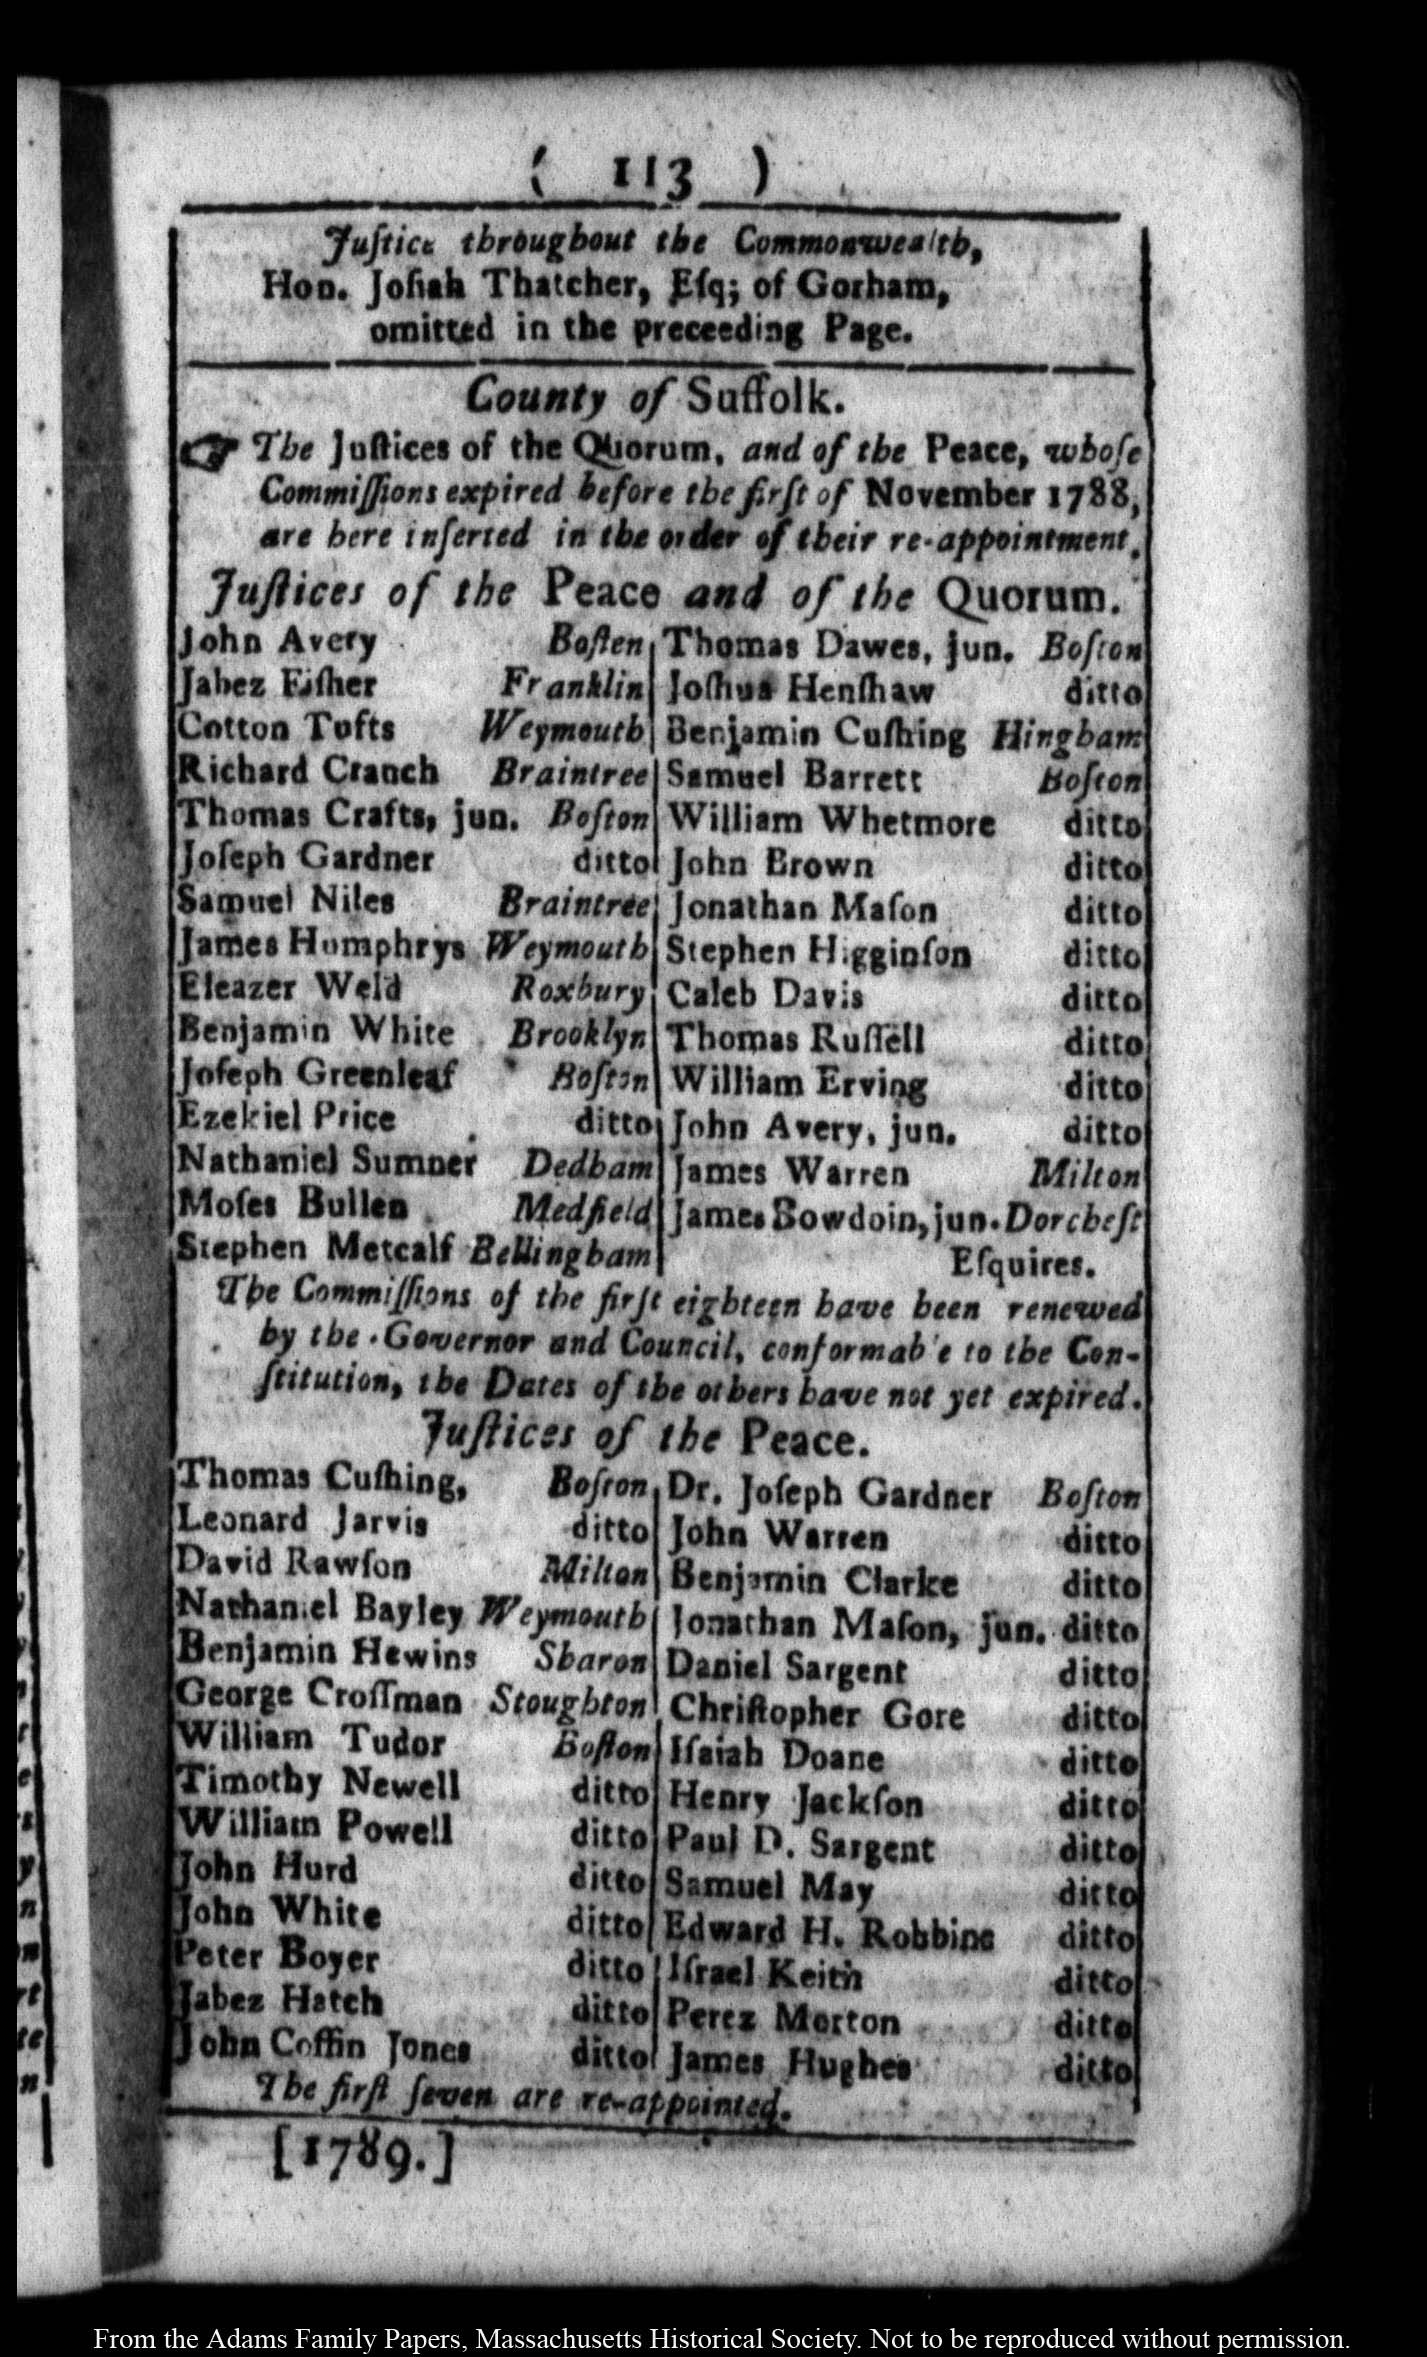 ( 113 )
Juſtice throughout the Commonwealth,
Hon. Joſiah Thatcher, Eſq; of Gorham,
omitted in the preceeding Page.
County of Suffolk.
☞ The Juſtices of the Quorum, and of the Peace, whoſe
Commiſſions expired before the firſt of November 1788,
are here inſerted in the order of their re-appointment.
Juſtices of the Peace and of the Quorum.
John Avery Boſten
Jabez Fiſher Franklin
Cotton Tufts Weymouth
Richard Cranch Braintree
Thomas Crafts, jun. Boſton
Joſeph Gardner ditto
Samuel Niles Braintree
James Humphrys Weymouth
Eleazer Weld Roxbury
Benjamin White Brooklyn
Joſeph Greenleaf Boſton
Ezekiel Price ditto
Nathaniel Sumner Dedham
Moſes Bullen Medfield
Stephen Metcalf Bellingham
Thomas Dawes, jun. Boſton
Joſhua Henſhaw ditto
Benjamin Cuſhing Hingham
Samuel Barrett Boſton
William Whetmore ditto
John Brown ditto
Jonathan Maſon ditto
Stephen Higginſon ditto
Caleb Davis ditto
Thomas Ruſſell ditto
William Erving ditto
John Avery, jun. ditto
James Warren Milton
James Bowdoin, jun. Dorcheſt
Eſquires.
The Commiſſions of the firſt eighteen have been renewed
by the Governor and Council, conformab'e to the Con-
ſtitution, the Dates of the others have not yet expired.
Juſtices of the Peace.
Thomas Cuſhing, Boſton
Leonard Jarvis ditto
David Rawſon Milton
Nathaniel Bayley Weymouth
Benjamin Hewins Sharon
George Croſſman Stoughton
William Tudor Boſton
Timothy Newell ditto
William Powell ditto
John Hurd ditto
John White ditto
Peter Boyer ditto
Jabez Hatch ditto
John Coffin Jones ditto
Dr. Joſeph Gardner Boſton
John Warren ditto
Benjamin Clarke ditto
Jonathan Maſon, jun. ditto
Daniel Sargent ditto
Chriſtopher Gore ditto
Iſaiah Doane ditto
Henry Jackſon ditto
Paul D. Sargent ditto
Samuel May ditto
Edward H. Robbins ditto
Iſrael Keith ditto
Perez Morton ditto
James Hughes ditto
The firſt ſeven are re-appointed.
[1789.]
From the Adams Family Papers, Massachusetts Historical Society. Not to be reproduced without permission.